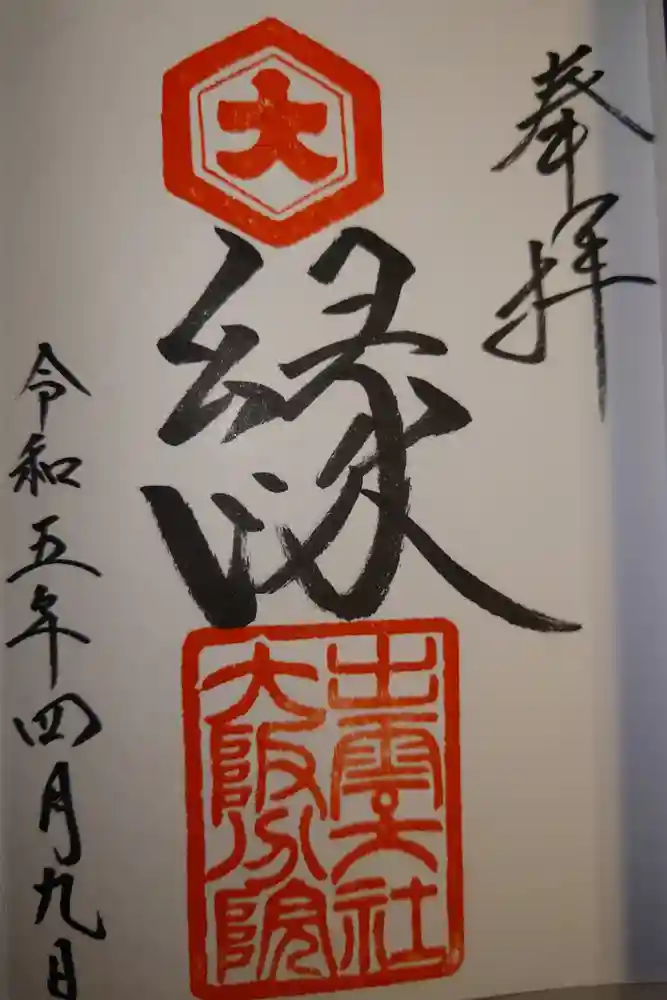 奉拝
大
縁
出雲大社
大阪分院
令和五年四月九日